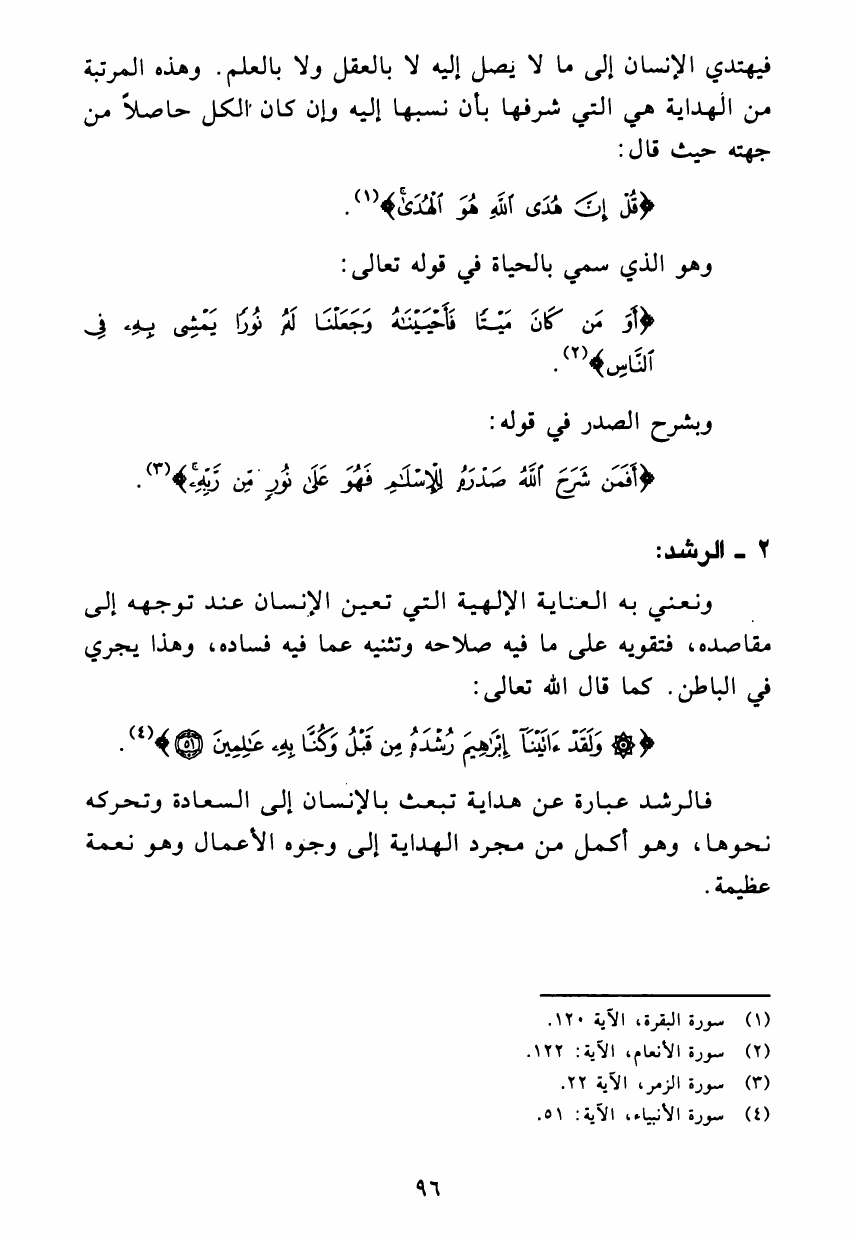 فيهتدي الإنسان إلى ما لا يصل إليه لا بالعقل ولا بالعلم. وهذه المرتبة
من الهداية هي التي شرفها بأن نسبها إليه وإن كان الكل حاصلاً من
جهته حيث قال:
﴿قُلْ إِنَّ هُدَى ٱللَّهِ هُوَ ٱلْهُدَىٰۗ﴾(١).
وهو الذي سمي بالحياة في قوله تعالى:
﴿أَوَ مَن كَانَ مَيْتًا فَأَحْيَيْنَٰهُ وَجَعَلْنَا لَهُۥ نُورًا يَمْشِى بِهِۦ فِى
ٱلنَّاسِ﴾(٢).
وبشرح الصدر في قوله:
﴿أَفَمَن شَرَحَ ٱللَّهُ صَدْرَهُۥ لِلْإِسْلَٰمِ فَهُوَ عَلَىٰ نُورٍ مِّن رَّبِّهِۦۚ﴾(٣).
٢ - الرشد:
ونعني به العناية الإلهية التي تعين الإنسان عند توجهه إلى
مقاصده، فتقويه على ما فيه صلاحه وتثنيه عما فيه فساده، وهذا يجري
في الباطن. كما قال الله تعالى:
﴿۞ وَلَقَدْ ءَاتَيْنَآ إِبْرَٰهِيمَ رُشْدَهُۥ مِن قَبْلُ وَكُنَّا بِهِۦ عَٰلِمِينَ ۝٥١﴾(٤).
فالرشد عبارة عن هداية تبعث بالإنسان إلى السعادة وتحركه
نحوها، وهو أكمل من مجرد الهداية إلى وجوه الأعمال وهو نعمة
عظيمة.
(١) سورة البقرة، الآية ١٢٠.
(٢) سورة الأنعام، الآية: ١٢٢.
(٣) سورة الزمر، الآية ٢٢.
(٤) سورة الأنبياء، الآية: ٥١.
٩٦